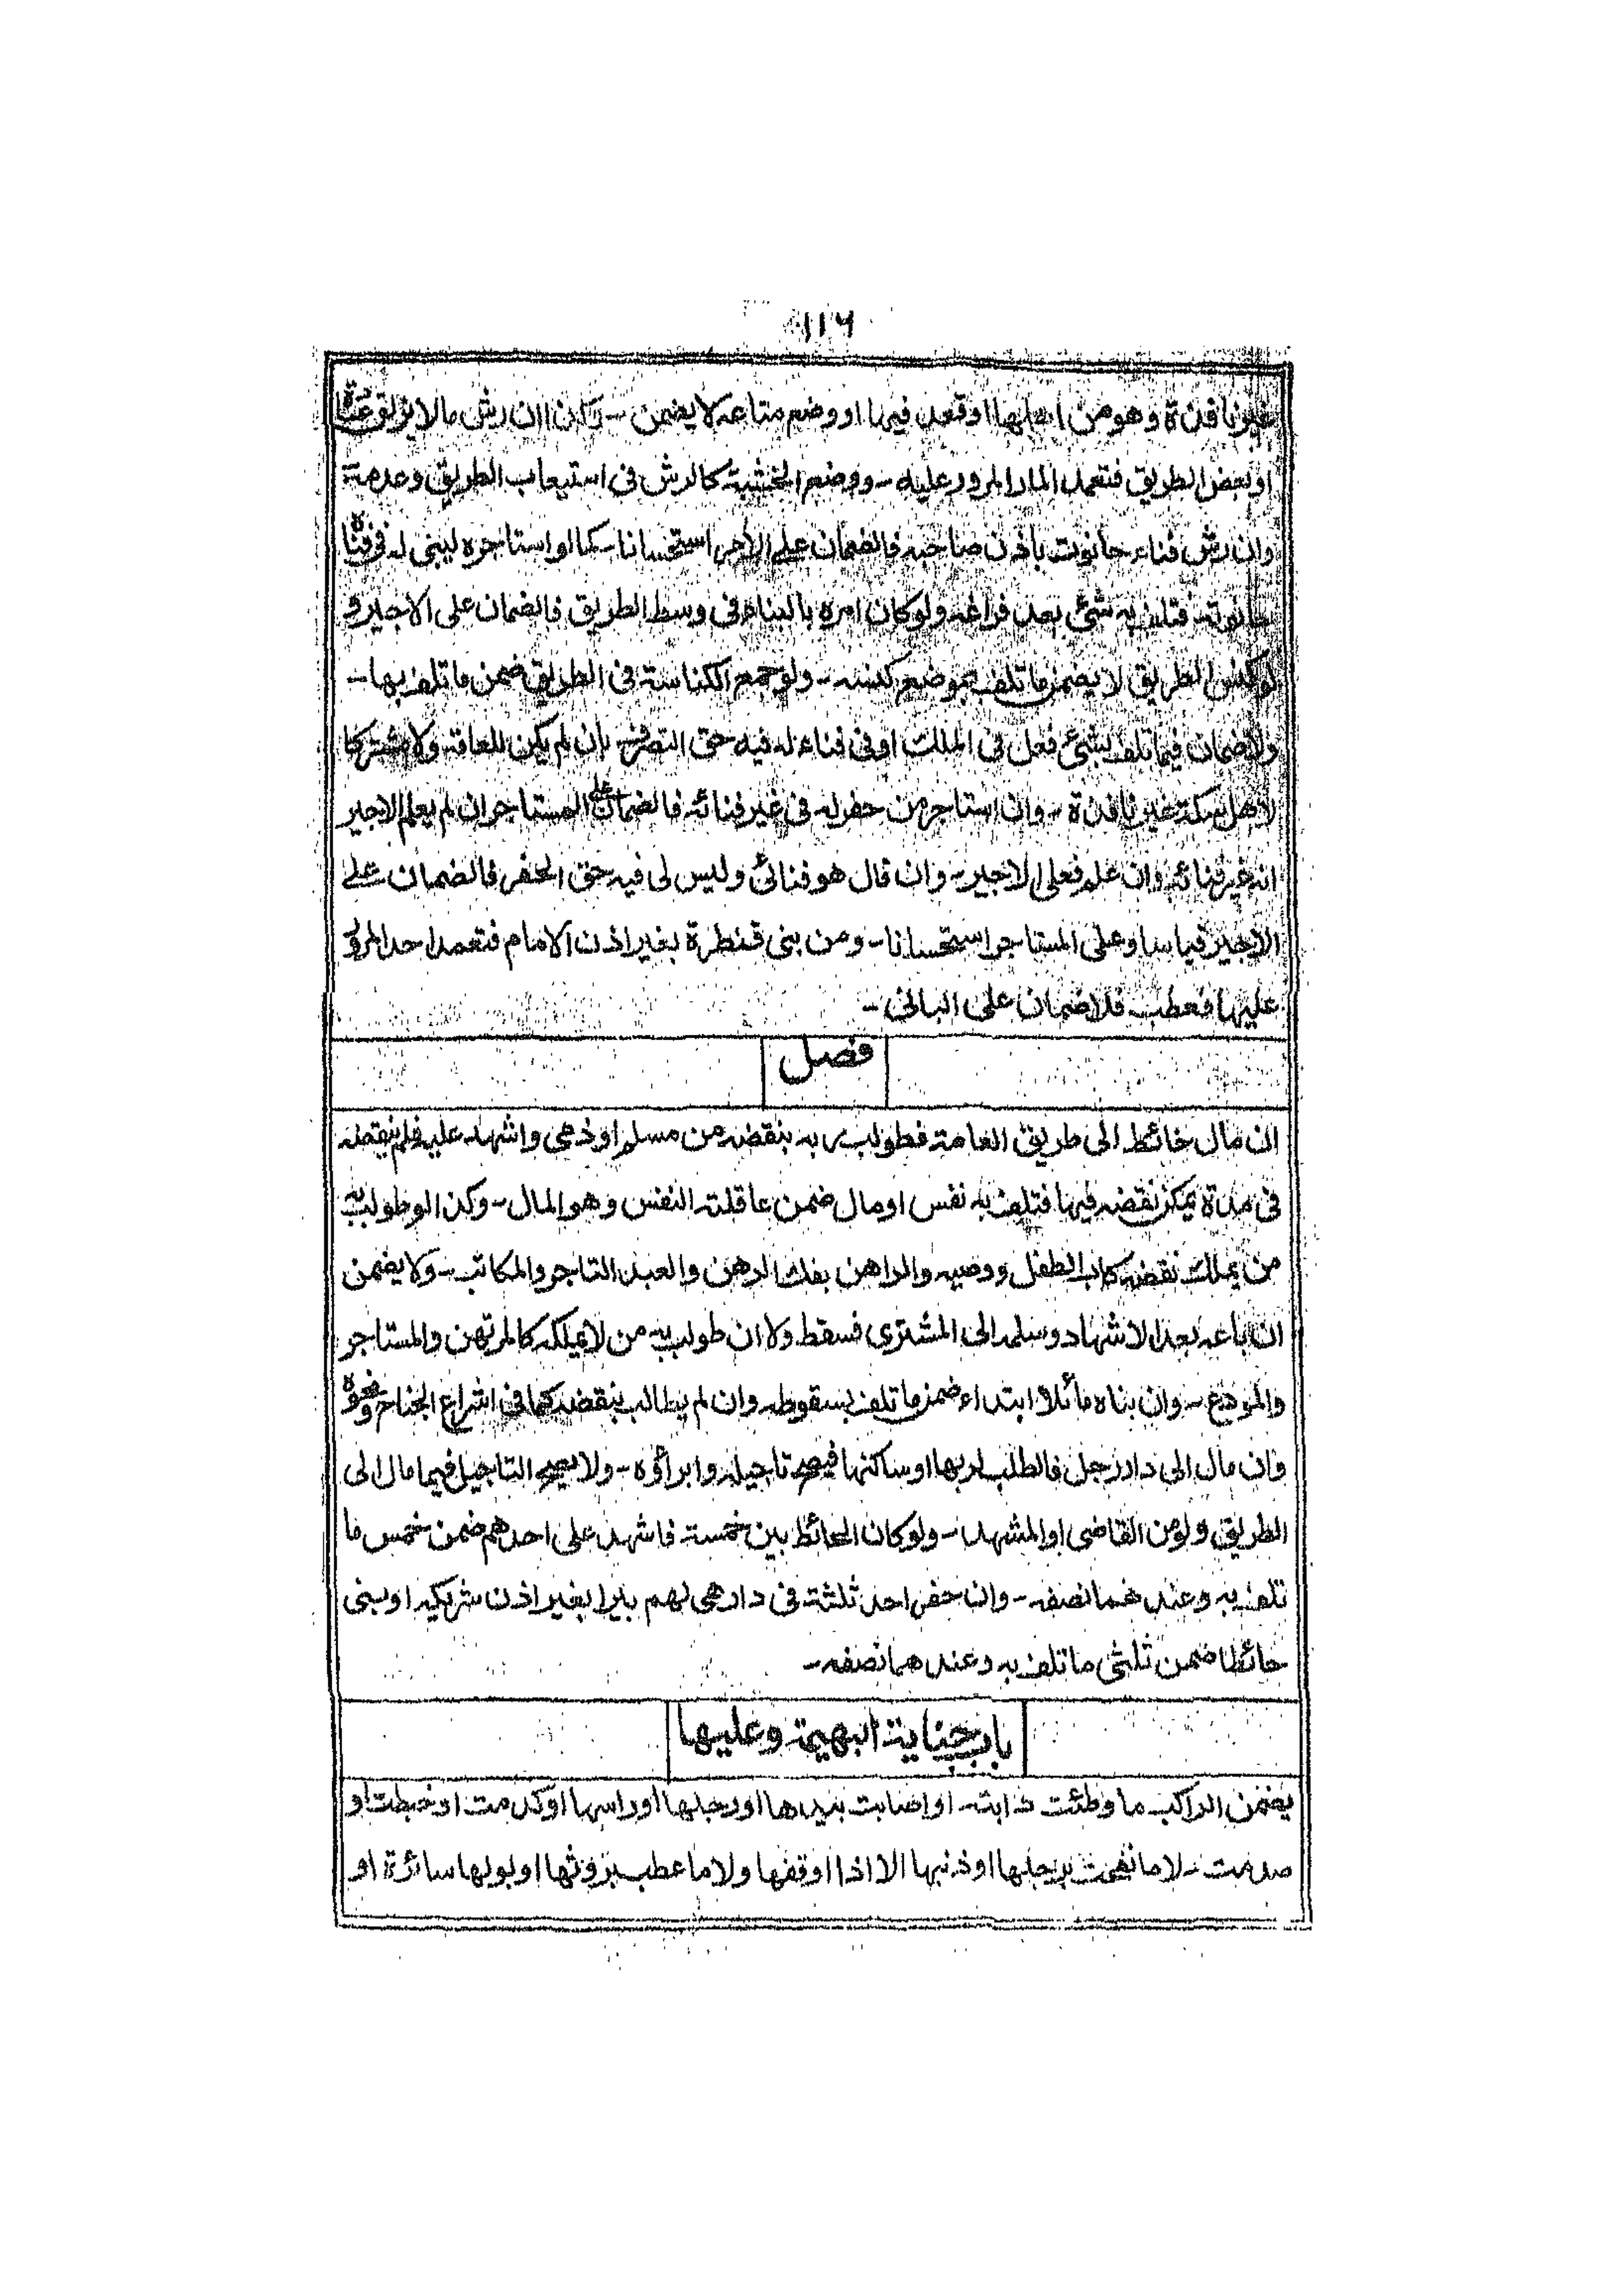 ١١٦
غير نافذة وهو من اهلها او قعد فيها او وضع متاعه لا يضمن - وكذا ان رش ما لا يزلق عادة
او بعض الطريق فتعمد المار المرور عليه - ووضع الخشبة كالرش فى استيعاب الطريق وعدمه
وان رش فناء حانوت باذن صاحبه فالضمان على الآمر استحسانا - كما لو استاجره ليبنى له فى فناء
حانوته فتلف به شئ بعد فراغه ولو كان امره بالبناء فى وسط الطريق فالضمان على الاجير و
لو كنس الطريق لا يضمن ما تلف بموضع كنسه - ولو جمع الكناسة فى الطريق ضمن ما تلف بها -
ولا ضمان فيما تلف بشئ فعل فى الملك او فى فناء له فيه حق التصرف بان لم يكن للعامة ولا مشتركا
لاهل سكة غير نافذة - وان استاجر من حفر له فى غير فنائه فالضمان على المستاجر ان لم يعلم الاجير
انه غير فنائه وان علم فعلى الاجير - وان قال هو فنائى وليس لى فيه حق الحفر فالضمان على
الاجير قياسا وعلى المستاجر استحسانا - ومن بنى قنطرة بغير اذن الامام فتعمد احد المرور
عليها فعطب فلا ضمان على البانى -
فصل
ان مال حائط الى طريق العامة فطولب ربه بنقضه من مسلم او ذمى واشهد عليه فلم ينقضه
فى مدة يمكن نقضه فيها فتلف به نفس او مال ضمن عاقلته النفس وهو المال - وكذا لو طولب به
من يملك نقضه كاب الطفل ووصيه والراهن بفك الرهن والعبد التاجر والمكاتب - ولا يضمن
ان باعه بعد الاشهاد وسلمه الى المشترى فسقط ولا ان طولب به من لا يملكه كالمرتهن والمستاجر
والمودع - وان بناه مائلا ابتداء ضمن ما تلف بسقوطه وان لم يطالب بنقضه كما فى اشراع الجناح ونحوه
وان مال الى دار رجل فالطلب لربها او ساكنها فيصح تاجيله وابراؤه - ولا يصح التاجيل فيما مال الى
الطريق ولو من القاضى او المشهد - ولو كان الحائط بين خمسة فاشهد على احدهم ضمن خمس ما
تلف به وعندهما نصفه - وان حفر احد ثلثة فى دار هى لهم بيرا بغير اذن شريكيه او بنى
حائطا ضمن ثلثى ما تلف به وعندهما نصفه -
باب جناية البهيمة وعليها
يضمن الراكب ما وطئت دابته او اصابت بيدها او رجلها او راسها او كدمت او خبطت او
صدمت - لا ما نفحت برجلها او ذنبها الا اذا اوقفها ولا ما عطب بروثها او بولها سائرة او